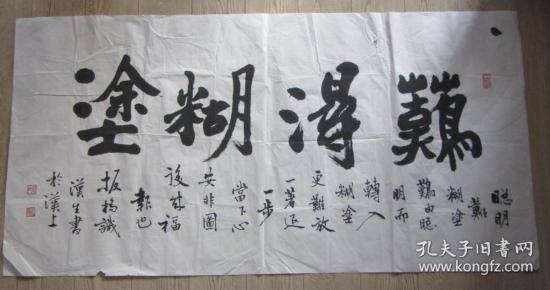 難得糊塗
聰明
難
糊塗
難由聰
明而
轉入
糊塗
更難放
一著退
一步
當下心
安非圖
後來福
報也
板橋識
漢生書
於漢上
孔夫子旧书网
www.kongfz.com